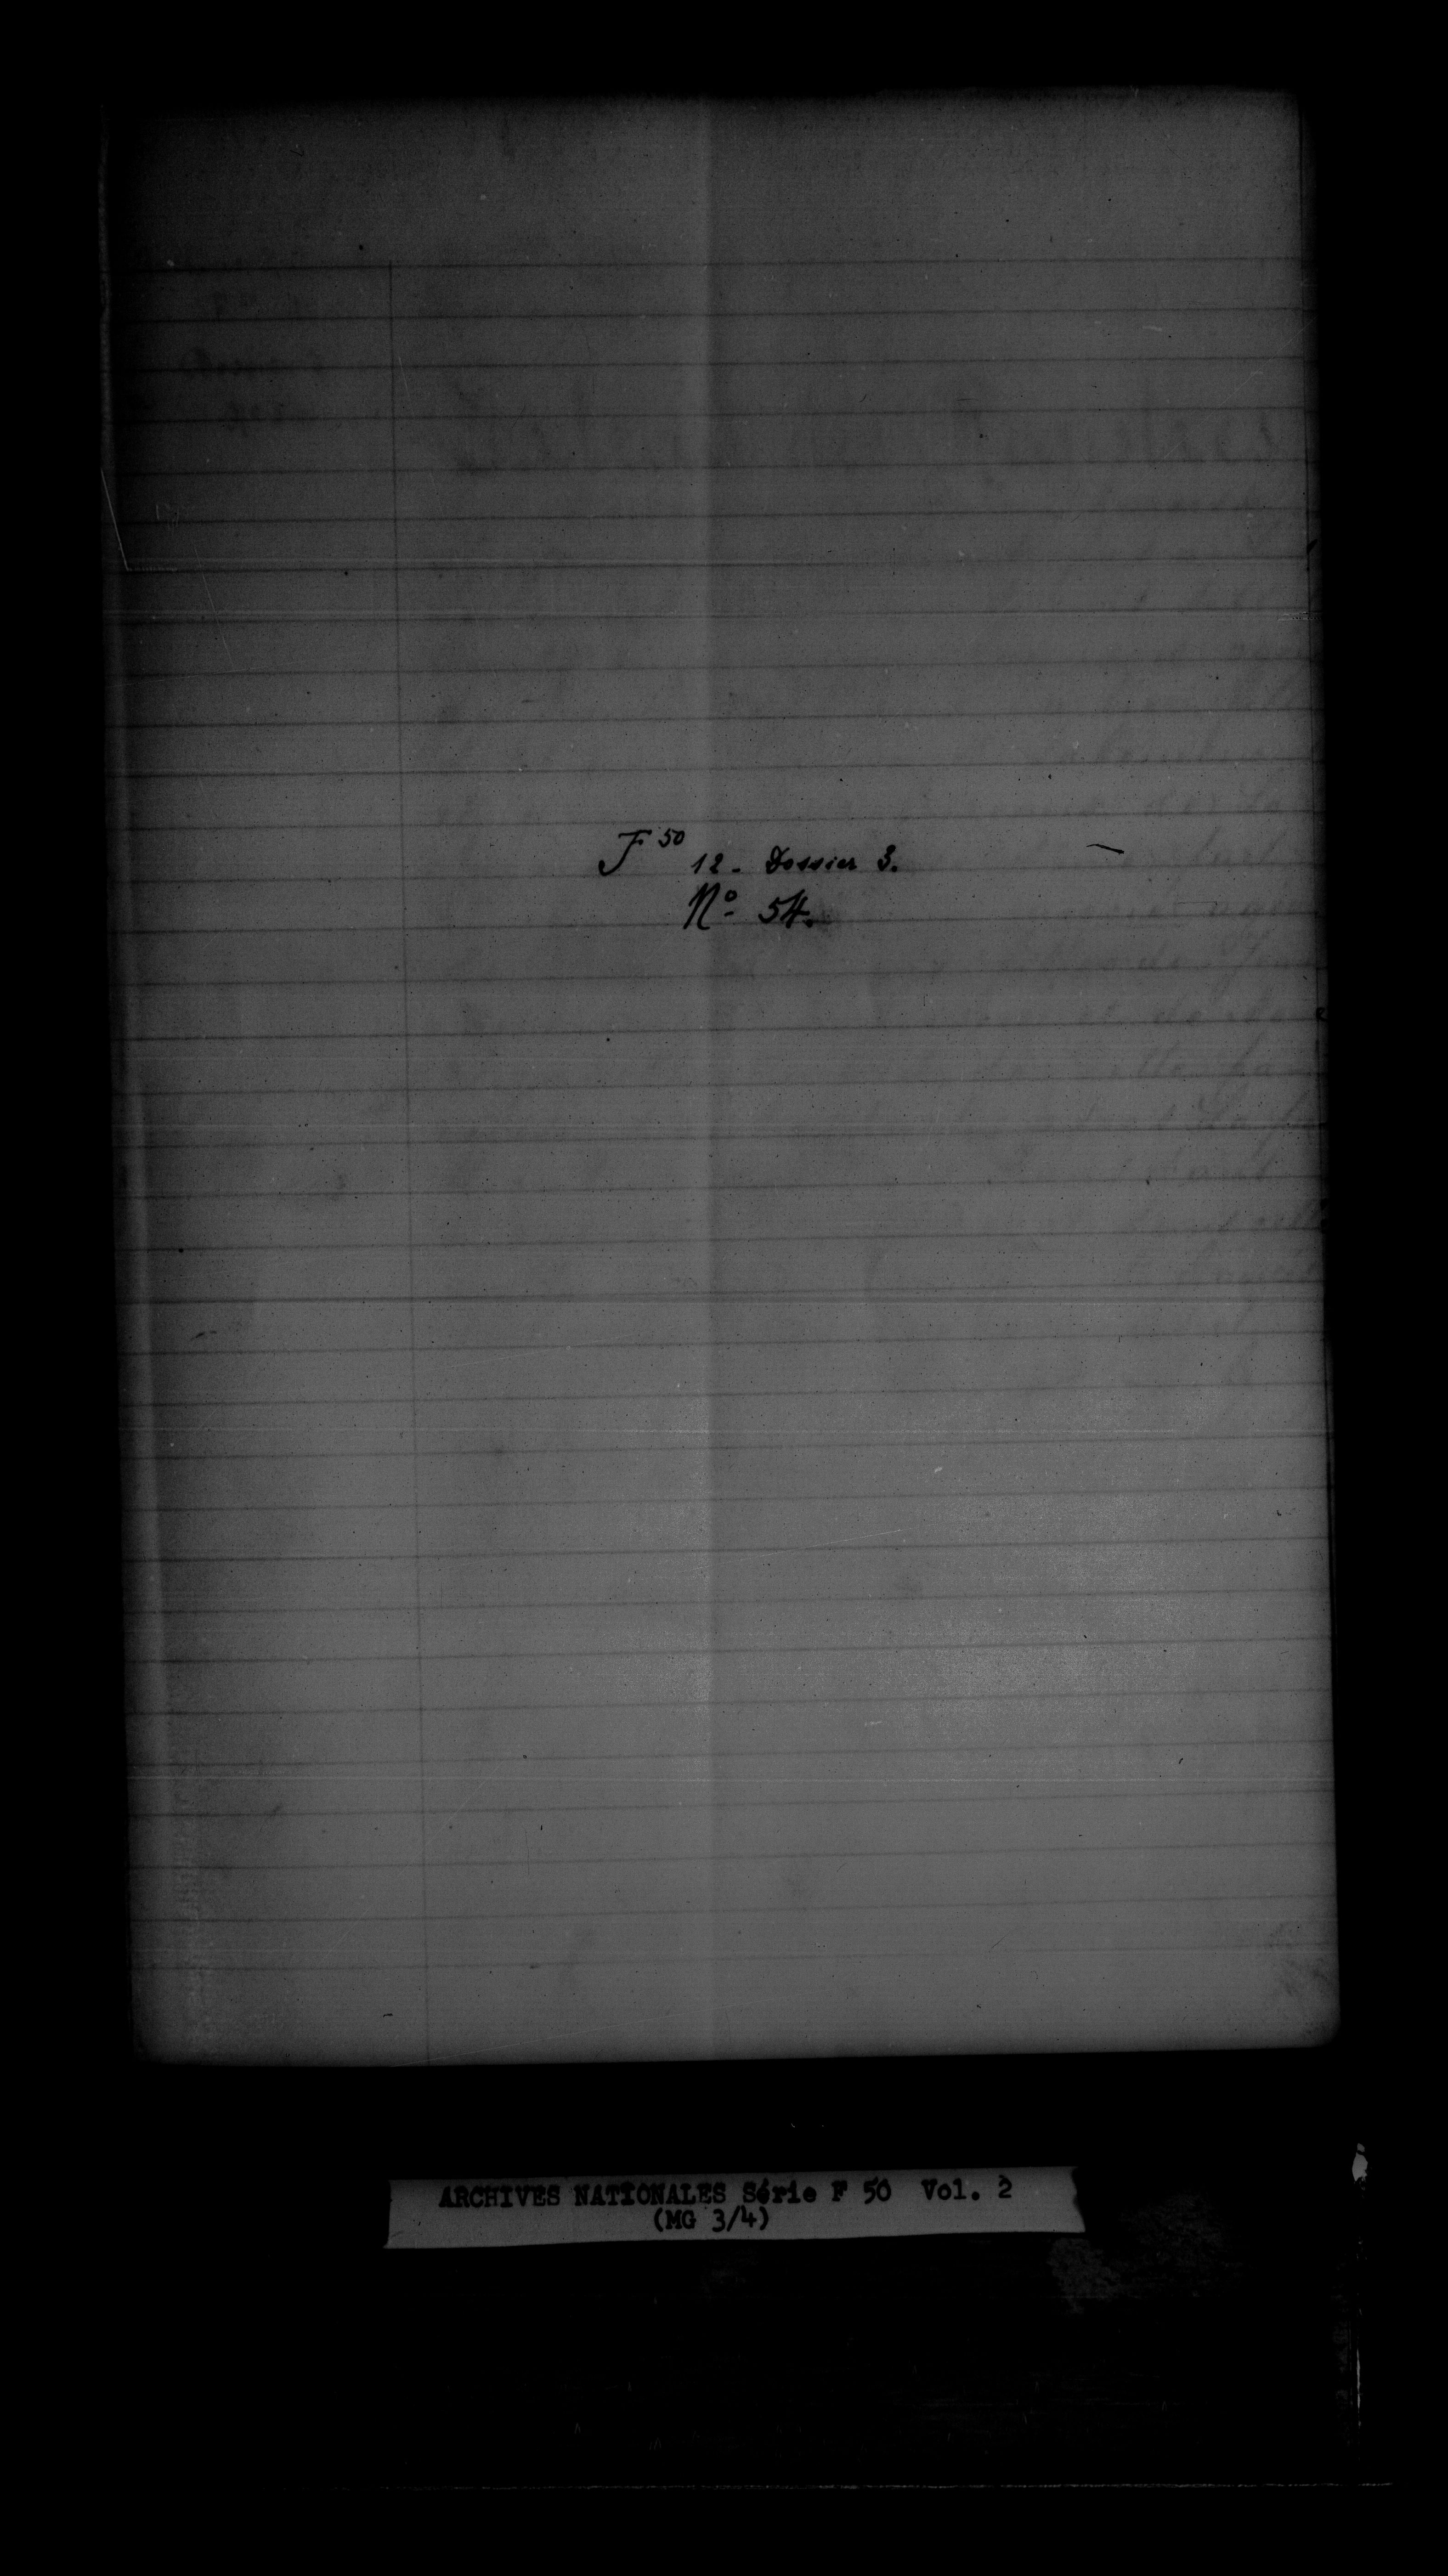 F 50
12 - Dossier 3.
No 54.
ARCHIVES NATIONALES Série F 50 Vol. 2
(MG 3/4)